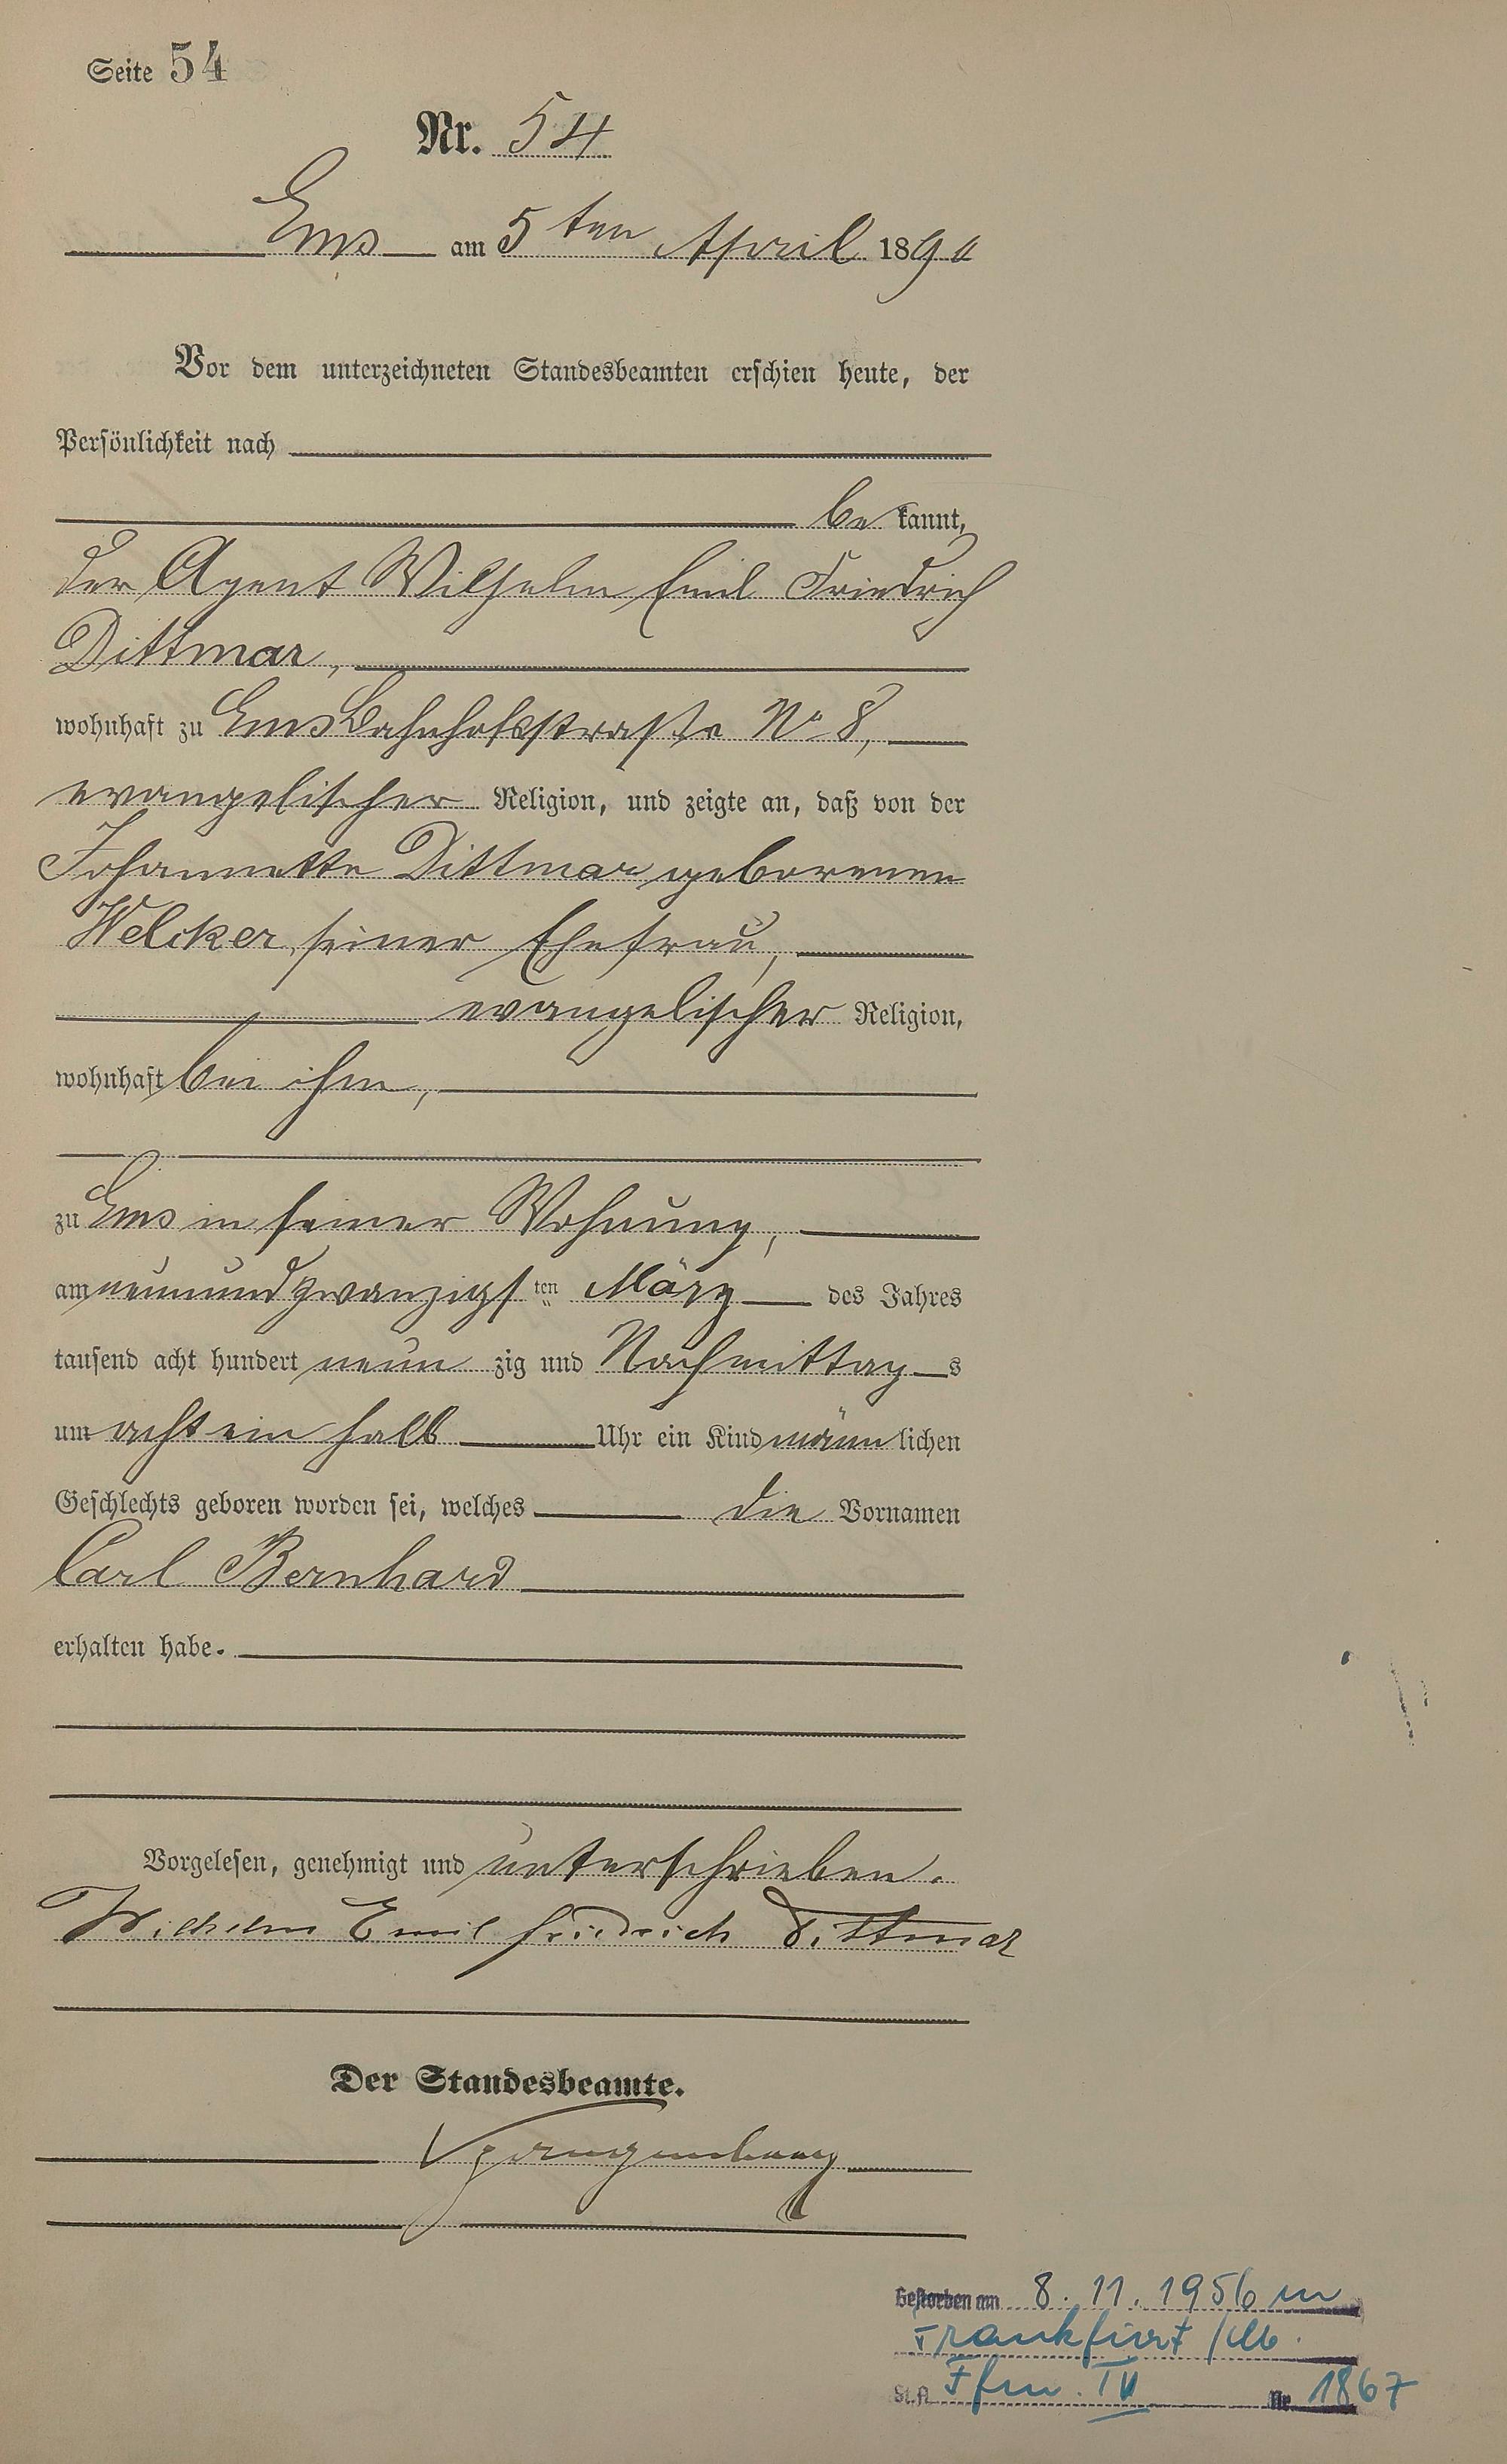 Seite 54
Nr. 54
Ems am 5ten April 1890
Vor dem unterzeichneten Standesbeamten erschien heute, der
Persönlichkeit nach
be kannt,
der Agent Wilhelm Emil Friedrich
Dittmar,
wohnhaft zu Ems Bahnhofsstraße No 8,
evangelischer Religion, und zeigte an, daß von der
Johannette Dittmar geborenen
Welcker, seiner Ehefrau,
evangelischer Religion,
wohnhaft bei ihm,
zu Ems in seiner Wohnung,
am neunundzwanzigsten März des Jahres
tausend acht hundert neun zig und Nachmittags
um acht ein halb Uhr ein Kind männlichen
Geschlechts geboren worden sei, welches die Vornamen
Carl Bernhard
erhalten habe.
Vorgelesen, genehmigt und unterschrieben.
Wilhelm Emil Friedrich Dittmar
Der Standesbeamte.
Gestorben am 8.11.1956 in
Frankfurt/M.
St.A. Ffm. IV Nr. 1867